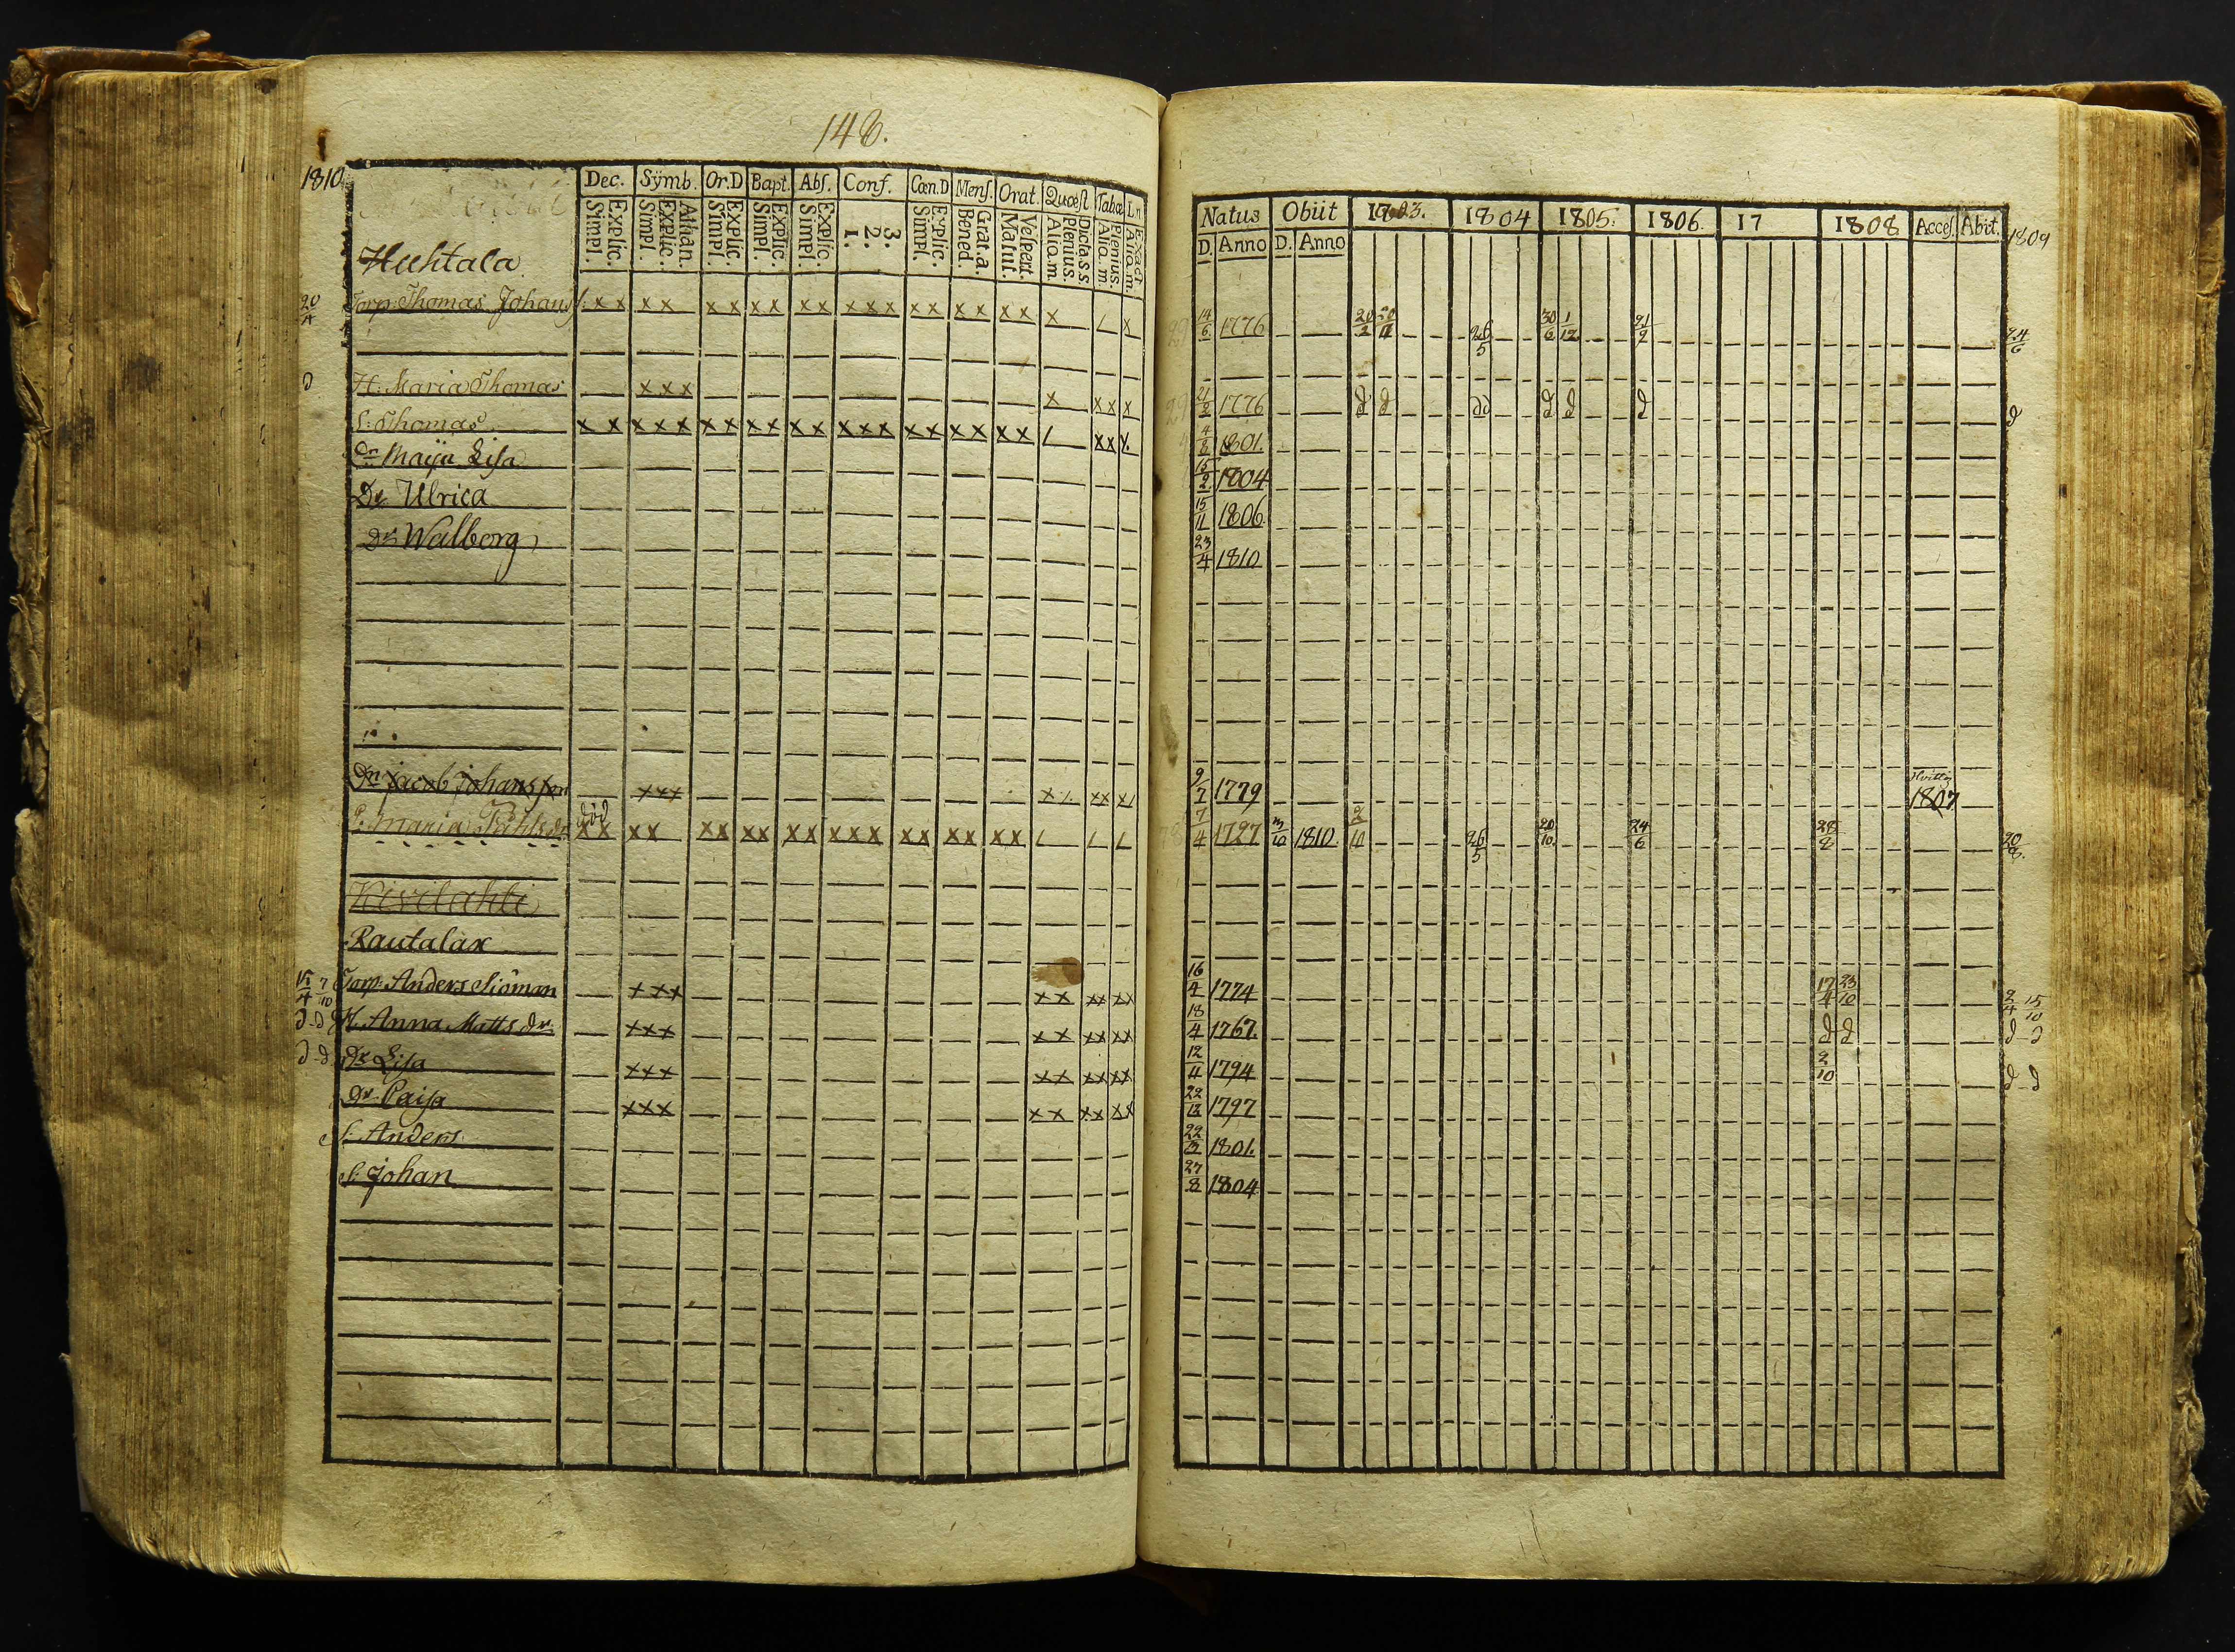 148.
1810
Dec. Symb. Or.D Bapt. Abſ. Conf. Cœn.D Menſ. Orat. Quæſt Tabæ Ln.
Explic. Simpl. Athan. Explic. Simpl. Explic. Simpl. Explic. Simpl. Explic. Simpl. 3. 2. 1. Explic. Simpl. Grat.a. Bened. Veſpert. Matut. Dicta s.s. Plenius. Aliq.m. Plenius. Aliq.m. Exact Aliq.m.
Natus Obiit 1803. 1804 1805. 1806. 17 1808 Acceſ. Abit. 1809
D. Anno D. Anno
Huhtala
20/4 Torp: Thomas Johansſ: x x x x x x x x x x x x x x x x x x x x x x x 14/6 1776 20/2 20/11 26/5 30/6 1/12 21/2 24/6
d H: Maria Thomas x x x x x x x 21/2 1776 d d dd d d d d
S: Thomas x x x x x x x x x x x x x x x x x x x x x x x x 4/8 1801.
Dr Maija Liſa 15/2 1804
Dr Ulrica 15/11 1806.
Dr Walborg 23/4 1810
Dn Jacob Johansſon x x x x x x x 9/7 1779 1807
död
Maria x x x x x x x x x x x x x x x x x x x 7/4 1727 3/10 1810. 2/10 26/5 20/10 24/6 28/8 20/8
Kivilahti
Rautalax
15/4 7/10 Torp: Anders Siöman x x x x x x x x x 16/4 1774 17/4 23/10 2/4 15/10
d-d H. Anna Matts dr. x x x x x x x x x 18/4 1767. d d d-d
d-d Dr Liſa x x x x x x x x x 12/11 1794 2/10 d-d
Dr Caiſa x x x x x x x x x 22/12 1797
S: Anders 1801.
S: Johan 27/8 1804